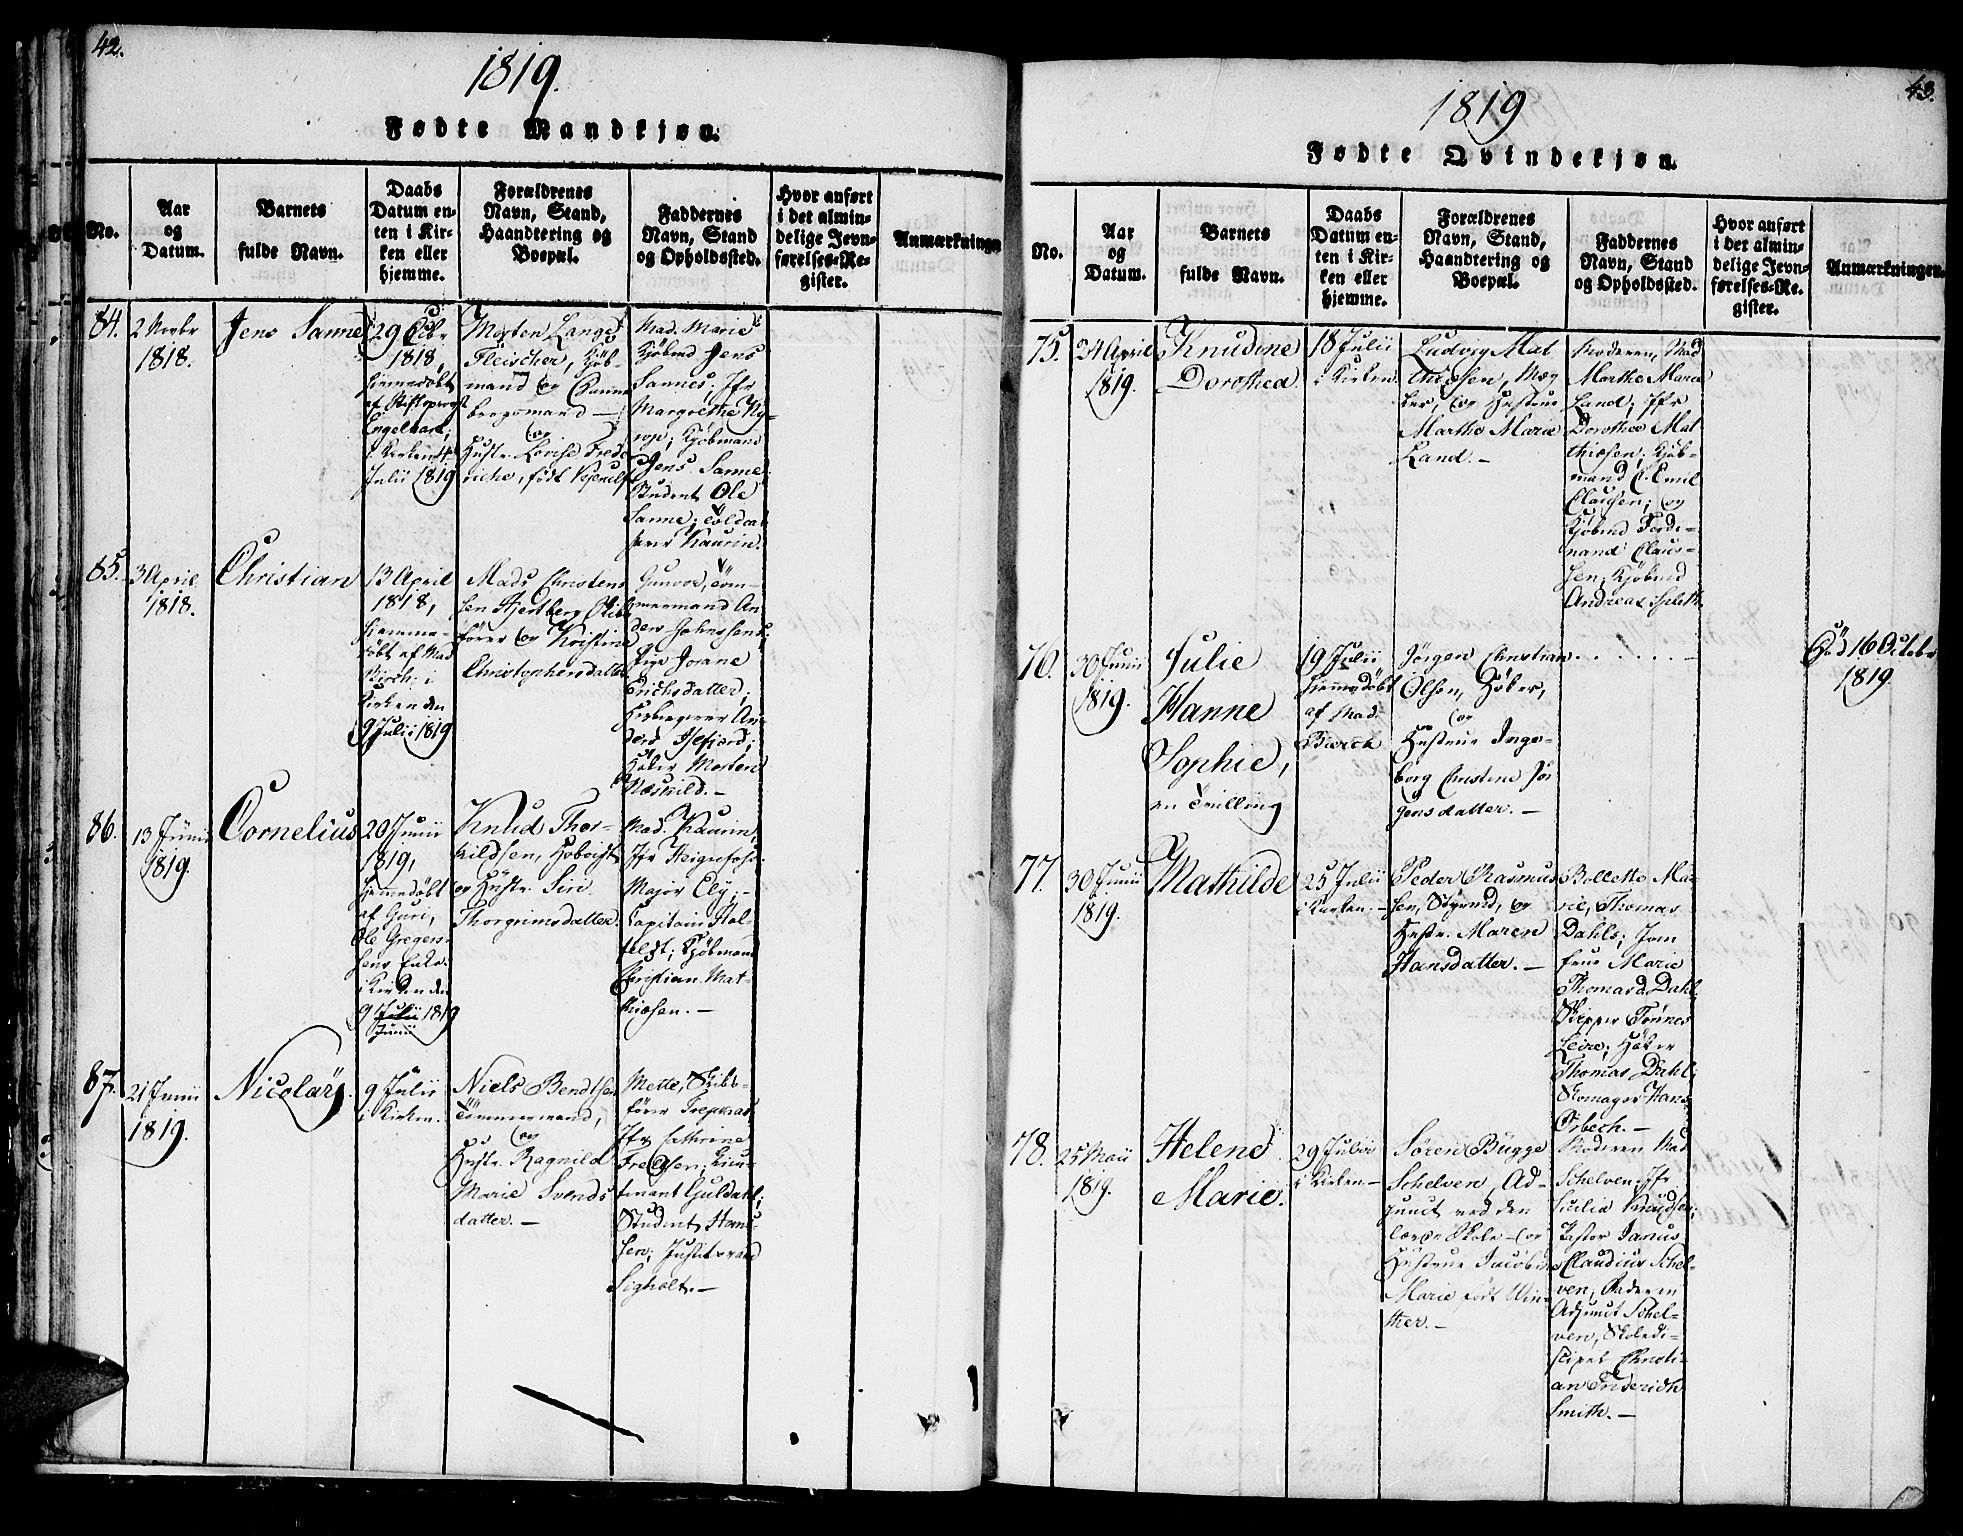 42.
1819.
Fødte Mandkjøn.
No.
Aar
og
Datum.
Barnets
fulde Navn.
Daabs
Datum en-
ten i Kir-
ken eller
hjemme.
Forældrenes
Navn, Stand,
Haandtering og
Boepæl.
Faddernes
Navn, Stand
og Opholdssted.
Hvor anført
i det almin-
delige Jevn-
førelses-Re-
gister.
Anmærkninger
84.
2 Novbr
1818.
Jens Sanne
29 Octbr
1818,
hiemmedøbt
af Stiftsprovst
Engelhart;
i Kirken 4
Julii 1819
Morten Lange
Fleischer, Kjøb-
mand og
bergsmand —
og
Hustr. Lovise Frede
riche, født
Mad. Marie
Kjøbmd Jens
Sannes; Jfr
Margrethe Ny-
rop; Kjøbmand
Jens Sanne
Student Ole
Sanne; Toldcas
serer Kaurin.
85.
3 April
1818.
Christian
13 April
1818,
hiemme-
døbt af Mad
Birch; i
Kirken den
9 Julii 1819
Mads Christen
sen Hjertberg
og Kristine
Christophersdatter
Gunvor, Tøm-
mermand An
ders Johnssens;
Pige Josane
Erichsdatter;
An
ders Isefjord;
Høker Morten
Næskild. —
86.
13 Junii
1819.
Cornelius
20 Junii
1819,
hjemmedøbt
af Guri,
Ole Gregers
sens Enke.
i Kirken den
9 Julii 1819
Junii
Knud Thor-
kildsen, Hoboist
og Hustr. Siri
Thorgrimsdatter.
Mad. Kaurin,
Jfr
Major Ely; —
Capitain Hol-
feldt; Kjøbmand
Christian Mat-
thiesen. —
87.
21 Junii
1819.
Nicolay
9 Julii
i Kirken.
Niels Bendtsen
Tømmermand,
og
Hustr. Ragnild
Marie Svends
datter. —
Mette, Skibs-
fører
Jfr Cathrine
Fredsen; Lieu-
tenant Guldahl;
Student Han-
sen; Justitsraad
Sigholt. —
43.
1819
Fødte Qvindekjøn.
No.
Aar
og
Datum.
Barnets
fulde Navn.
Daabs
Datum en-
ten i Kir-
ken eller
hjemme.
Forældrenes
Navn, Stand,
Haandtering og
Boepæl.
Faddernes
Navn, Stand
og Opholdssted.
Hvor anført
i det almin-
delige Jevn-
førelses-Re-
gister.
Anmærkninger.
75.
24 April
1819.
Knudine
Dorothea
18 Julii
i Kirken.
Ludvig Mat
thiesen, Mæg
ler, og Hustrue
Marthe Marie
Land. —
Moderen, Mad
Marthe Marie
Land; Jfr
Dorothea Mat
thiesen; Kjøb-
mand C. Emil
Clausen; og
Kjøbmd Ferdi-
nand Claus-
sen; Kjøbmd
Andreas Spleth
76.
30 Junii
1819.
Julie
Hanne
Sophie,
en Tvilling
19 Julii
hiemmedøbt
af Mad.
Birch
Jørgen Christian
Olsen, Høker,
og
Hustrue Inge-
borg Christine Jør
gensdatter. —
Død 16 Octobr
1819
77.
30 Junii
1819.
Mathilde
25 Julii
i Kirken. —
Peder Rasmus
sen, Styrmd, og
Hustr. Maren
Hansdatter. —
Bollette Ma-
rie, Thomas
Dahls; Jom
frue Marie
Thomasd. Dahl
Skipper Tønnes
Leire; Høker
Thomas Dahl;
Skomager Hans
Orbech. —
78.
25 Maii
1819.
Helene
Marie.
29 Julii
i Kirken —
Søren Bugge
Schelven, Ad-
junct ved den
lærde Skole — og
Hustrue Jacobine
Marie født Win-
ther. —
Moderen Mad
Schelven; Jfr
Cecilia Knudsen;
Pastor Janus
Claudius Schel-
ven; Faderen
Adjunct Schel-
ven, Skoledi-
scipel Christi-
an Friderich
Smith. —